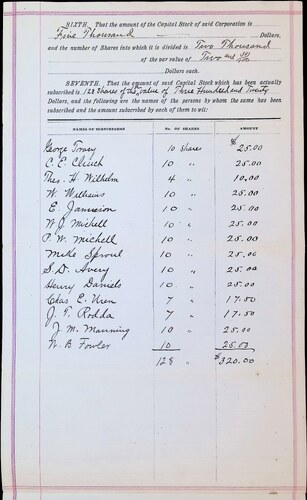 SIXTH. That the amount of the Capital Stock of said Corporation is
Five Thousand Dollars,
and the number of Shares into which it is divided is Two Thousand
of the par value of Two and 50/100
Dollars each.
SEVENTH. That the amount of said Capital Stock which has been actually
subscribed is 128 Shares of the value of Three Hundred and Twenty
Dollars, and the following are the names of the persons by whom the same has been
subscribed and the amount subscribed by each of them to wit:
NAMES OF SUBSCRIBERS No. OF SHARES AMOUNT
George Torey 10 Shares $25.00
C. E. Clinch 10 " 25.00
Thos. H. Wilhelm 4 " 10.00
W. Withews 10 " 25.00
E. Jamieson 10 " 25.00
W. J. Michell 10 " 25.00
P. W. Michell 10 " 25.00
Mike Sproul 10 " 25.00
S. D. Avery 10 " 25.00
Henry Daniels 10 " 25.00
Chas E. Uren 7 " 17.50
J. T. Rodda 7 " 17.50
J. M. Manning 10 " 25.00
W. B Fowler 10 25.00
128 " $320.00